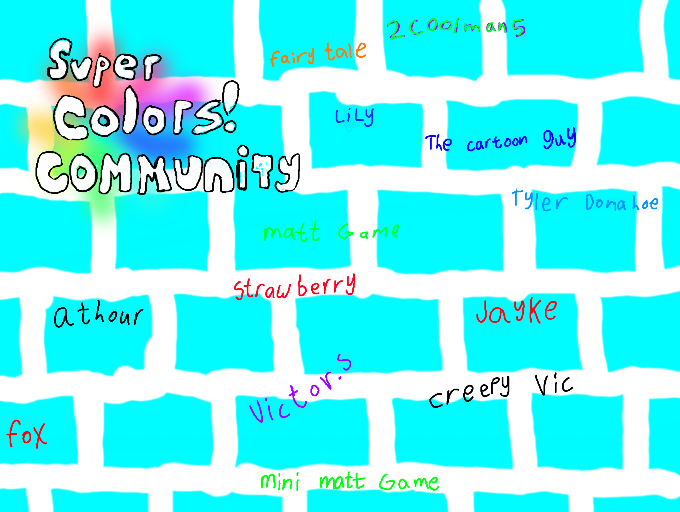 Super
Colors!
COMMUNITY
fairy tale
2COOlman5
LiLy
The cartoon guy
Tyler Donahoe
matt Game
Strawberry
athour
Jayke
Victor.S
creepy Vic
fox
mini matt Game